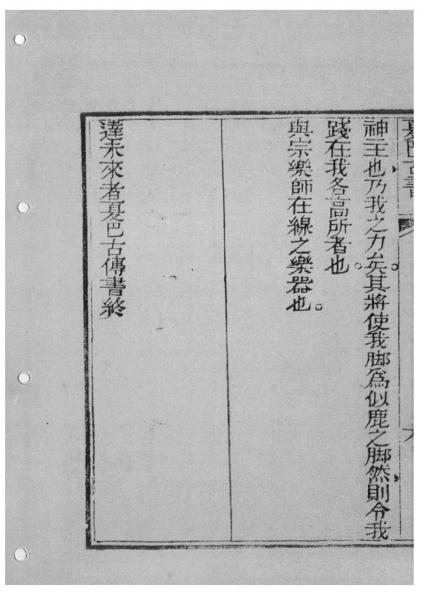 夏巴古書
神主也乃我之力矣。其將使我脚為似鹿之脚然則令我
踐在我各高所者也
與宗樂師在線之樂器也。
達未來者夏巴古傳書終